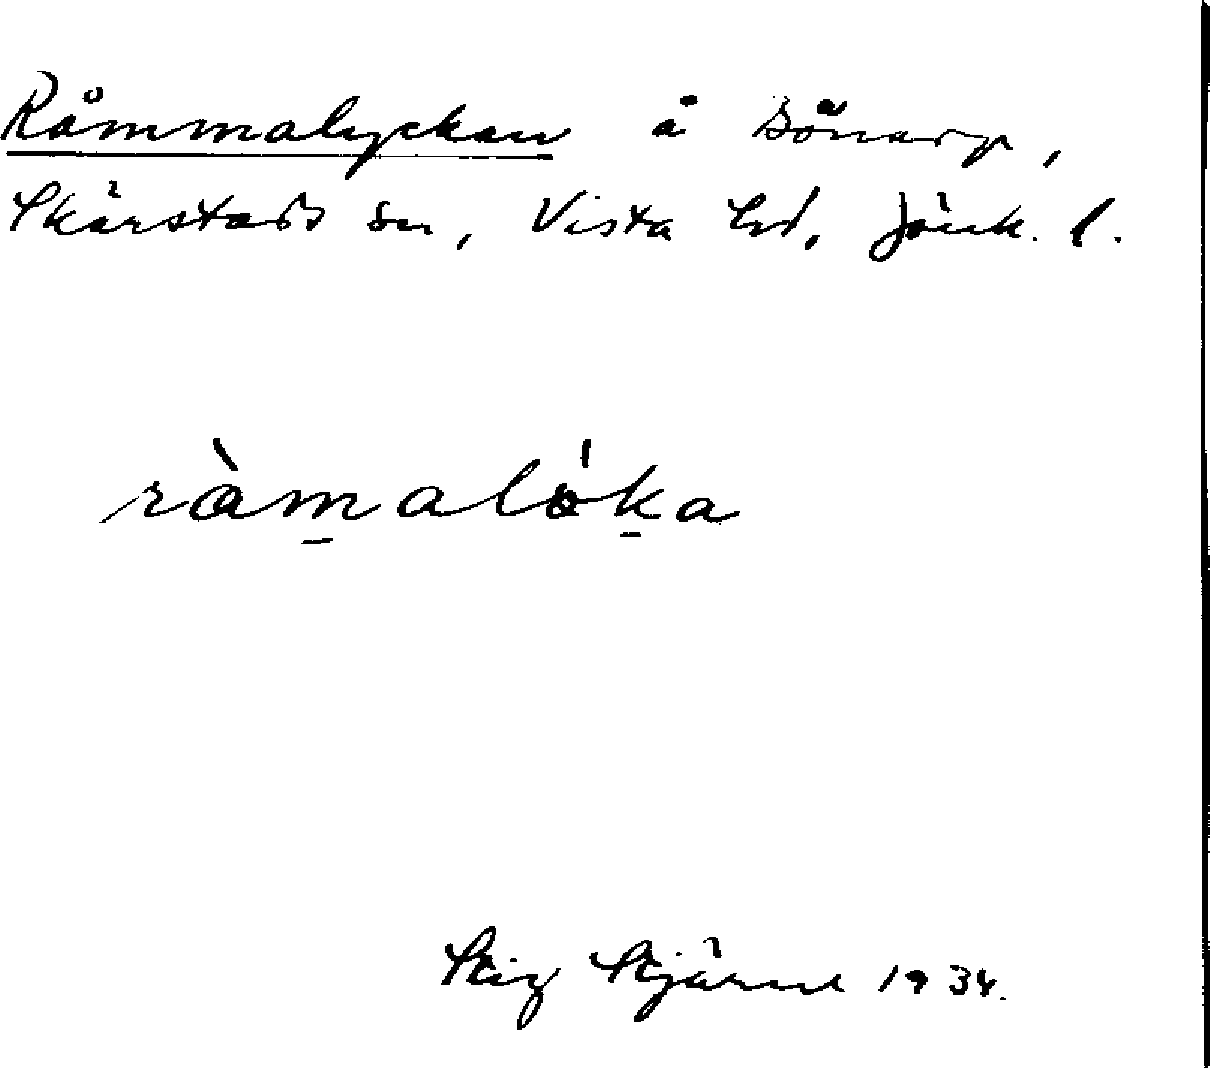 Råmmalyckan å Bönarp,
Skärstads sn, Vista hd, Jönk. l.
ràmalöka
Stig Stjärne 1934.